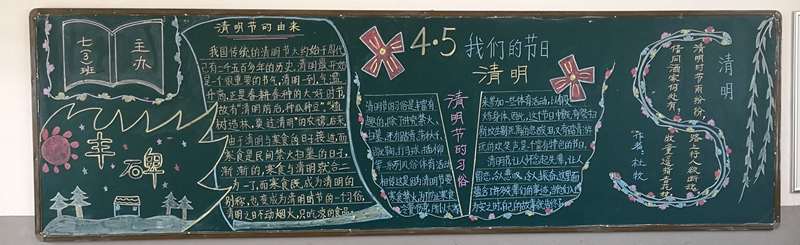 七(3)班
主办
丰碑
清明节的由来
我国传统的清明节大约始于周代
已有二千五百多年的历史。清明最开始
是一个很重要的节气,清明一到,气温
升高,正是春耕春种的大好时节
故有“清明前后,种瓜种豆”“植
树造林,莫过清明”的农谚。后来
由于清明与寒食的日子接近,而
寒食是民间禁火扫墓的日子,
渐渐的,寒食与清明就合二
为一了,而寒食既成为清明的
别称,也变成为清明时节的一个习俗,
清明之日不动烟火,只吃凉的食品。
4·5 我们的节日
清明
清明节的习俗
清明节的习俗是丰富有
趣的,除了讲究禁火、
扫墓,还有踏青、荡秋千、
蹴鞠、打马球、插柳
等一系列风俗体育活动
相传这是因为清明节要
寒食禁火,为防止寒食
来参加一些体育活动,以锻
炼身体。因此,这个节日中既有祭扫
新坟生别死离的悲酸泪,又有踏青游
玩的欢笑声,是个富有特色的节日。
清明
清明时节雨纷纷,
路上行人欲断魂。
借问酒家何处有,
牧童遥指杏花村。
作者:杜牧